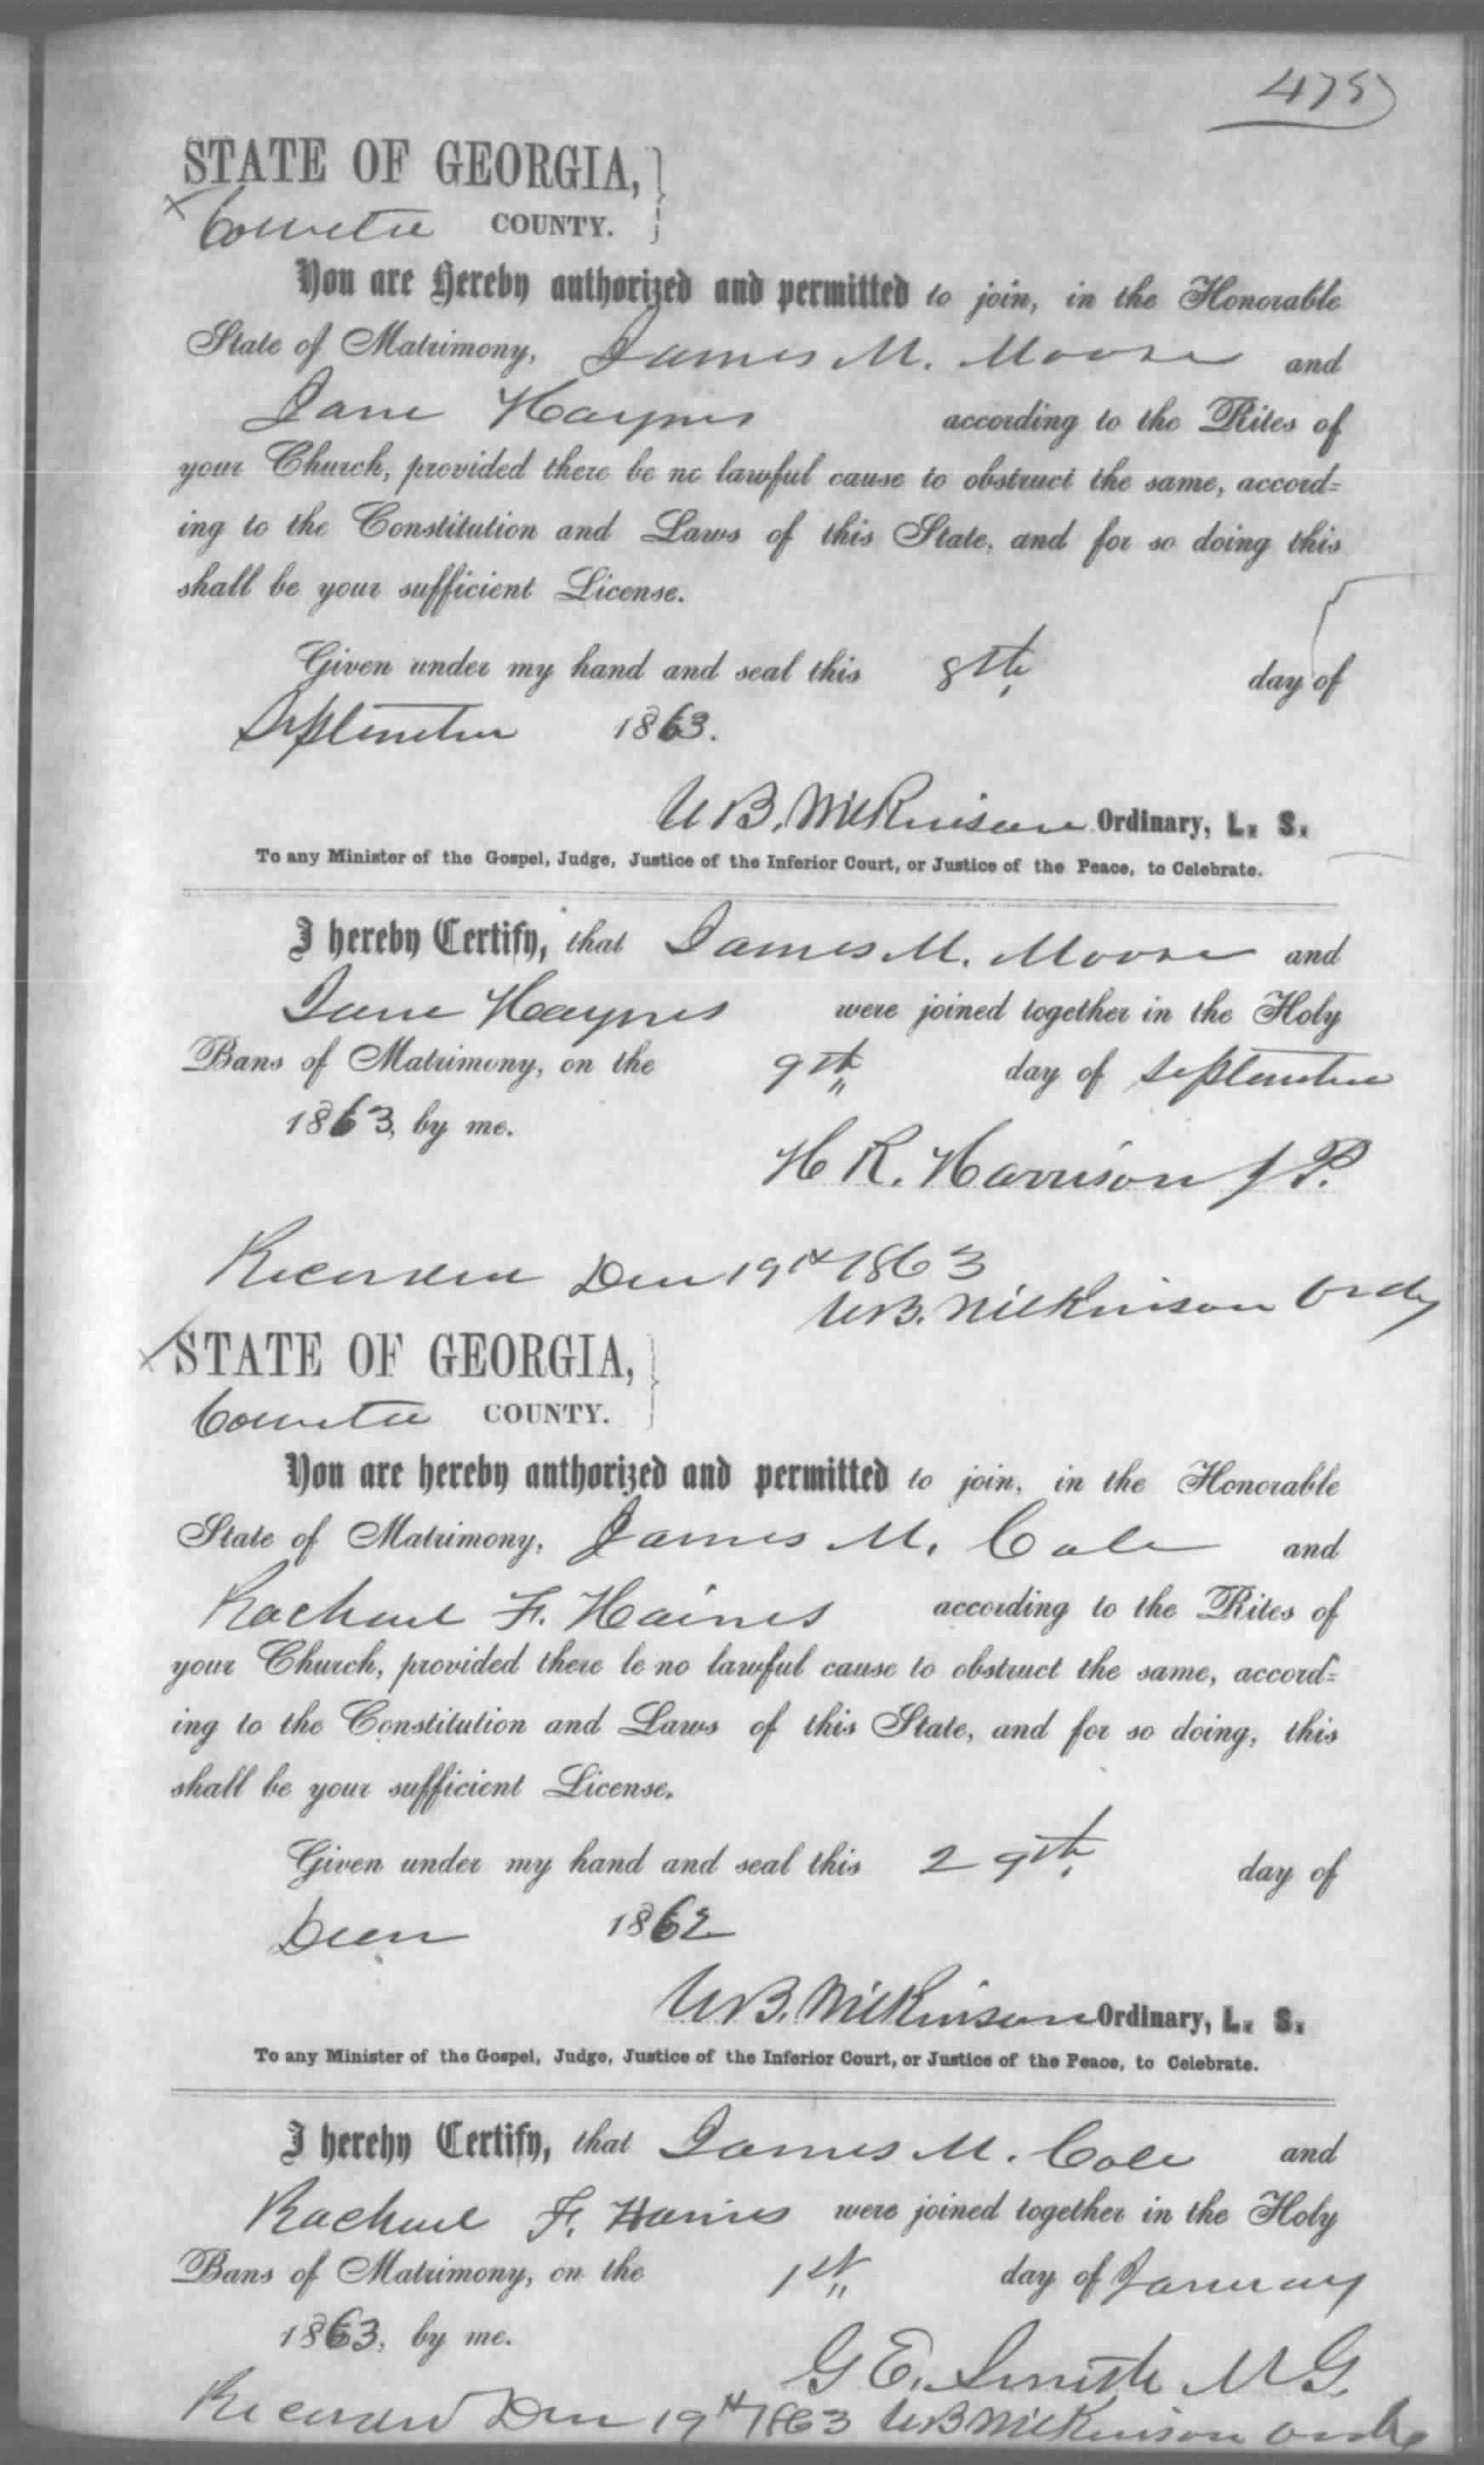 475
STATE OF GEORGIA,
Coweta COUNTY.
You are Hereby authorized and permitted to join, in the Honorable
State of Matrimony, James M. Moore and
Jane Haynes according to the Rites of
your Church, provided there be no lawful cause to obstruct the same, accord=
ing to the Constitution and Laws of this State, and for so doing this
shall be your sufficient License.
Given under my hand and seal this 8th day of
September 1863.
U B. Wilkinson Ordinary, L. S.
To any Minister of the Gospel, Judge, Justice of the Inferior Court, or Justice of the Peace, to Celebrate.
I hereby Certify, that James M. Moore and
Jane Haynes were joined together in the Holy
Bans of Matrimony, on the 9th day of September
1863, by me.
H R. Harrison J P.
Recorded Decr 19th 1863
U.B. Wilkinson Ordy
STATE OF GEORGIA,
Coweta COUNTY.
You are hereby authorized and permitted to join, in the Honorable
State of Matrimony, James M. Cole and
Rachael F. Haines according to the Rites of
your Church, provided there be no lawful cause to obstruct the same, accord=
ing to the Constitution and Laws of this State, and for so doing, this
shall be your sufficient License.
Given under my hand and seal this 29th day of
Decr 1862
U.B. Wilkinson Ordinary, L. S.
To any Minister of the Gospel, Judge, Justice of the Inferior Court, or Justice of the Peace, to Celebrate.
I hereby Certify, that James M. Cole and
Rachael F. Haines were joined together in the Holy
Bans of Matrimony, on the 1st day of January
1863, by me.
G E. Smith M G.
Recorded Decr 19th 1863 U B Wilkinson Ordy